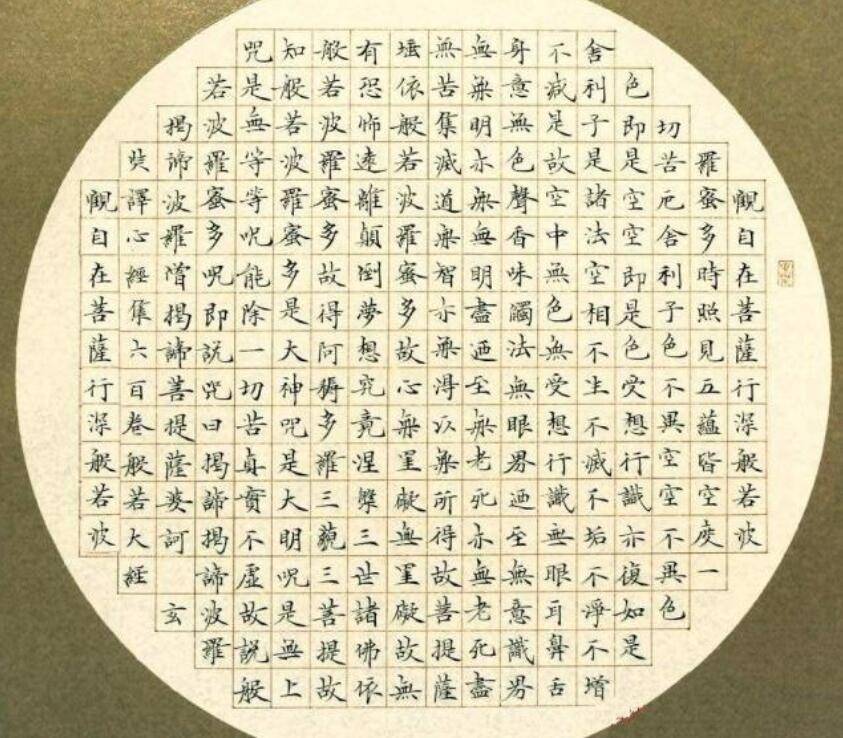 觀自在菩薩行深般若波
羅蜜多時照見五蘊皆空度一
切苦厄舍利子色不異空空不異色
色即是空空即是色受想行識亦復如是
舍利子是諸法空相不生不滅不垢不淨不增
不減是故空中無色無受想行識無眼耳鼻舌
身意無色聲香味觸法無眼界迺至無意識界
無無明亦無無明盡迺至無老死亦無老死盡
無苦集滅道無智亦無得以無所得故菩提薩
埵依般若波羅蜜多故心無罣礙無罣礙故無
有恐怖遠離顛倒夢想究竟涅槃三世諸佛依
般若波羅蜜多故得阿耨多羅三藐三菩提故
知般若波羅蜜多是大神咒是大明咒是無上
咒是無等等咒能除一切苦真實不虛故説般
若波羅蜜多咒即説咒曰揭諦揭諦波羅
揭諦波羅僧揭諦菩提薩婆訶 玄
奘譯心經集六百卷般若大經
觀自在菩薩行深般若波